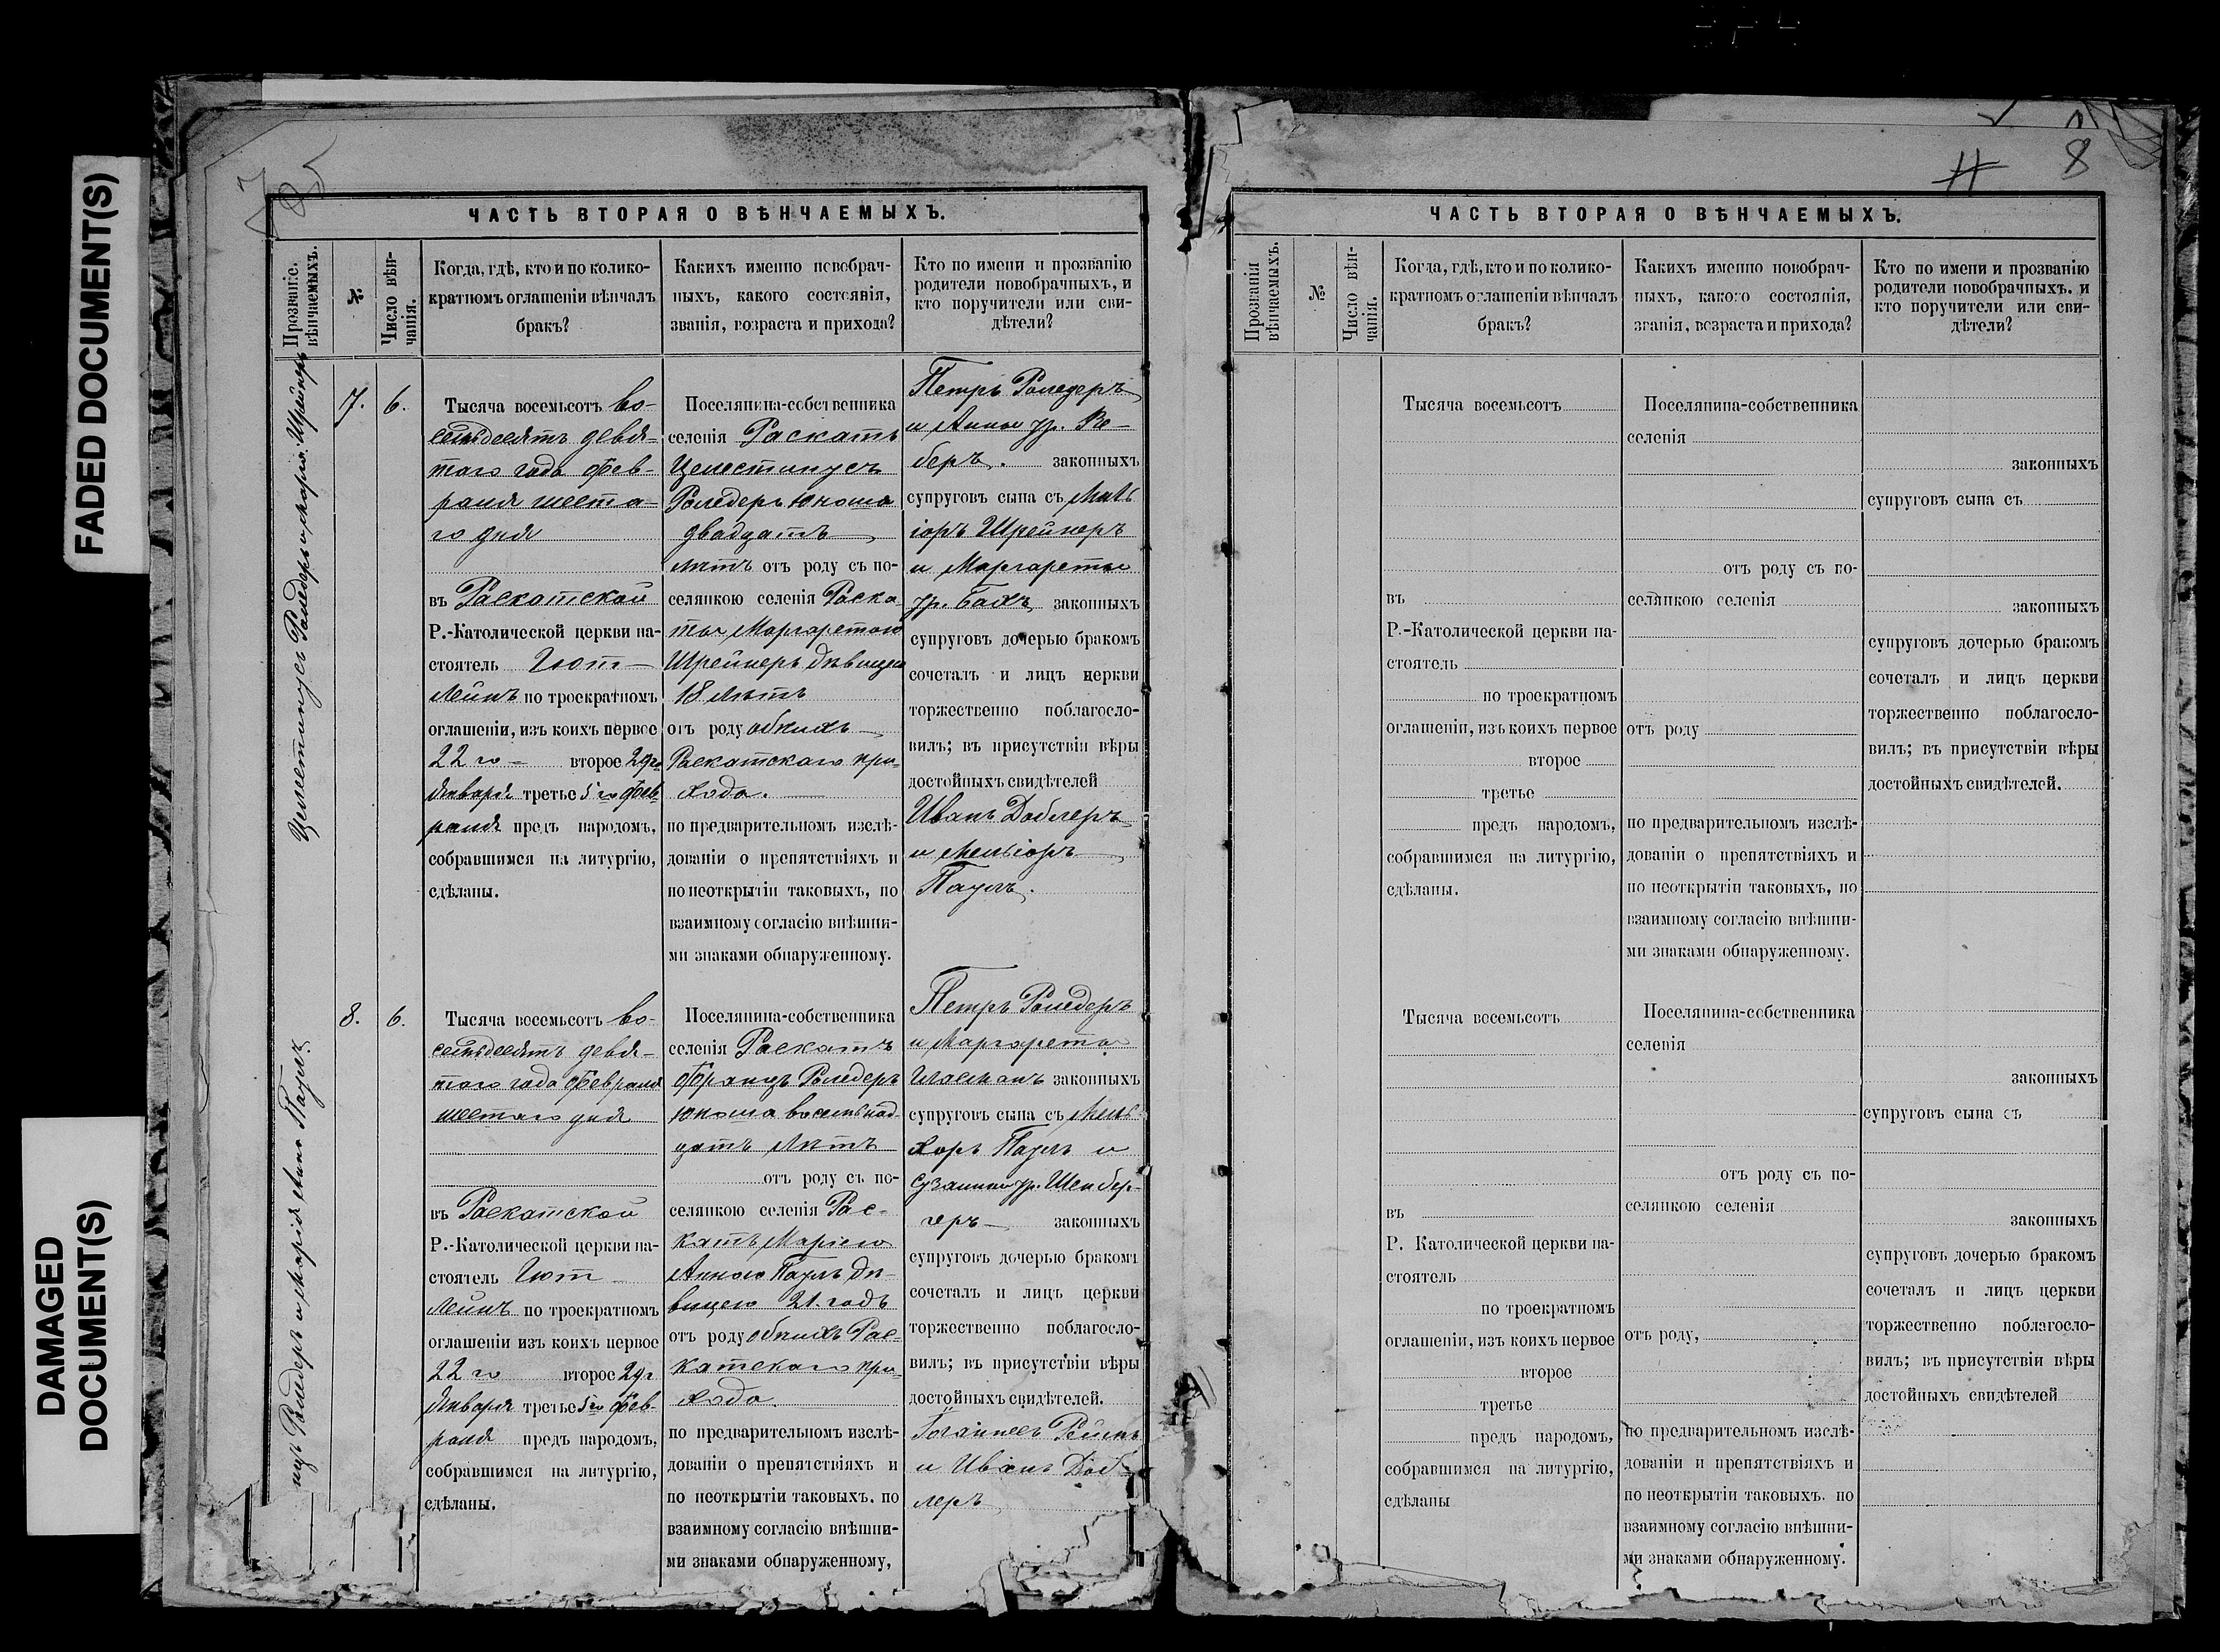 FADED DOCUMENT(S)
DAMAGED
DOCUMENT(S)
8
ЧАСТЬ ВТОРАЯ О ВѢНЧАЕМЫХЪ.
Прозваніе.
вѣнчаемыхъ.
№
Число вѣн-
чанія.
Когда, гдѣ, кто и по колико-
кратномъ оглашеніи вѣнчалъ
бракъ?
Какихъ именно новобрач-
ныхъ, какого состоянія,
званія, возраста и прихода?
Кто по имени и прозванію
родители новобрачныхъ, и
кто поручители или сви-
дѣтели?
Целестинусъ Роледеръ и Маргар. Шрейнеръ
7.
6.
Тысяча восемьсотъ во-
семьдесятъ девя-
таго года фев-
раля шеста-
го дня
въ Раскатской
Р.-Католической церкви на-
стоятель Гют-
лейнъ по троекратномъ
оглашеніи, изъ коихъ первое
22 го второе 29го
января третье 5 го фев-
раля предъ народомъ,
собравшимся на литургію,
сдѣланы.
Поселянина-собственника
селенія Раскатъ
Целестинусъ
Роледеръ юноша
двадцать
лѣтъ отъ роду съ по-
селянкою селенія Раска-
ты Маргаретою
Шрейнеръ дѣвицею
18 лѣтъ
отъ роду обкихъ
Раскатскаго при-
хода.
по предварительномъ изслѣ-
дованіи о препятствіяхъ и
по неоткрытіи таковыхъ, по
взаимному согласію внѣшни-
ми знаками обнаруженному.
Петръ Роледеръ
и Анны ур. Ве-
беръ. законныхъ
супруговъ сына съ
іоръ Шрейнеръ
и Маргареты
ур. Бахъ законныхъ
супруговъ дочерью бракомъ
сочеталъ и лицъ церкви
торжественно поблагосло-
вилъ; въ присутствіи вѣры
достойныхъ свидѣтелей
Иванъ Доблеръ
и Мельіоръ
Пауль.
нцъ Роледеръ и Марія Анна Пауль
8.
6.
Тысяча восемьсотъ во-
семьдесятъ девя-
таго года февраля
шестаго дня
въ Раскатской
Р.-Католической церкви на-
стоятель Гют-
лейнъ по троекратномъ
оглашеніи изъ коихъ первое
22 го второе 29г
января третье 5го фев-
раля предъ народомъ,
собравшимся на литургію,
сдѣланы.
Поселянина-собственника
селенія Раскатъ
Францъ Роледеръ
юноша восемьнад-
цать лѣтъ
отъ роду съ по-
селянкою селенія Рас-
катъ Маріею
Анною Пауль дѣ-
вицею 21. годъ
отъ роду обкихъ Рас-
катскаго при-
хода.
по предварительномъ изслѣ-
дованіи о препятствіяхъ и
по неоткрытіи таковыхъ. по
взаимному согласію внѣшни-
ми знаками обнаруженному,
Петръ Роледеръ
и Маргареты
законныхъ
супруговъ сына съ Мель-
хоръ Пауль и
Сузанны ур. Шенбер-
геръ законныхъ
супруговъ дочерью бракомъ
сочеталъ и лицъ церкви
торжественно поблагосло-
вилъ; въ присутствіи вѣры
достойныхъ свидѣтелей.
Іоганнесъ
и Иванъ Доб-
леръ
8
ЧАСТЬ ВТОРАЯ О ВѢНЧАЕМЫХЪ.
Прозванія
вѣнчаемыхъ.
№
Число вѣн-
чанія.
Когда, гдѣ, кто и по колико-
кратномъ оглашеніи вѣнчалъ
бракъ?
Какихъ именно новобрач-
ныхъ, какого состоянія,
званія, возраста и прихода?
Кто по имени и прозванію
родители новобрачныхъ. и
кто поручители или сви-
дѣтели?
Тысяча восемьсотъ
въ
Р.-Католической церкви на-
стоятель
по троекратномъ
оглашеніи, изъ коихъ первое
второе
третье
предъ народомъ,
собравшимся на литургію,
сдѣланы.
Поселянина-собственника
селенія
отъ роду съ по-
селянкою селенія
отъ роду
по предварительномъ изслѣ-
дованіи о препятствіяхъ и
по неоткрытіи таковыхъ, по
взаимному согласію внѣшни-
ми знаками обнаруженному.
законныхъ
супруговъ сына съ
законныхъ
супруговъ дочерью бракомъ
сочеталъ и лицъ церкви
торжественно поблагосло-
вилъ; въ присутствіи вѣры
достойныхъ свидѣтелей.
Тысяча восемьсотъ
въ
Р. Католической церкви на-
стоятель
по троекратномъ
оглашеніи, изъ коихъ первое
второе
третье
предъ народомъ,
собравшимся на литургію,
сдѣланы
Поселянина-собственника
селенія
отъ роду съ по-
селянкою селенія
отъ роду,
по предварительномъ изслѣ-
дованіи и препятствіяхъ и
по неоткрытіи таковыхъ. по
взаимному согласію внѣшни-
ми знаками обнаруженному.
законныхъ
супруговъ сына съ
законныхъ
супруговъ дочерью бракомъ
сочеталъ и лицъ церкви
торжественно поблагосло-
вилъ; въ присутствіи вѣры
достойныхъ свидѣтелей